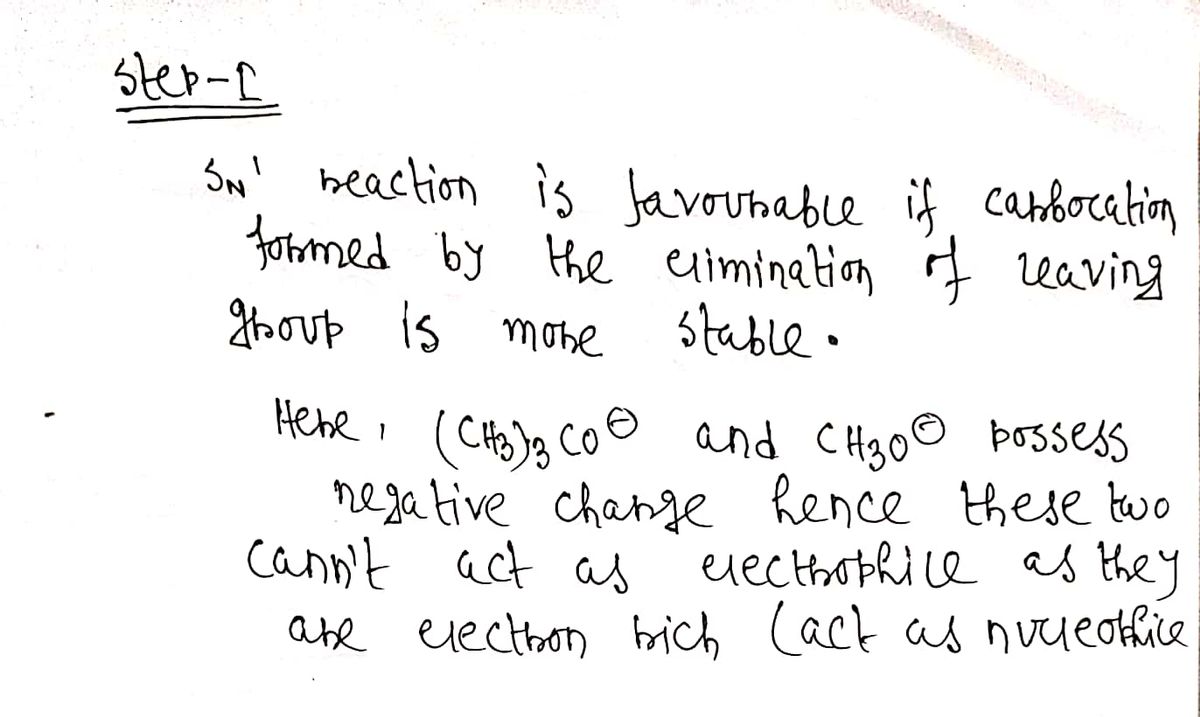 Step-I
SN1 reaction is favourable if carbocation
formed by the elimination of leaving
group is more stable.
Here, (CH3)3CO⊖ and CH3O⊖ possess
negative charge hence these two
cann't act as electrophile as they
are electron rich (act as nucleophile